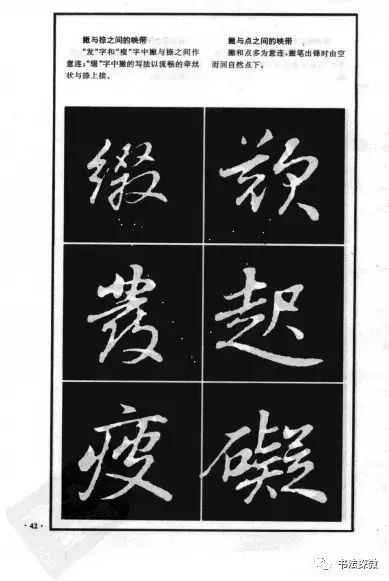 撇与捺之间的映带
“发”字和“瘦”字中撇与捺之间作
意连;“缀”字中撇的写法以流畅的牵丝
状与捺上接。
撇与点之间的映带
撇和点多为意连,撇笔出锋时由空
而回自然点下。
綴
發
起
瘦
礙
·42·
书法探教